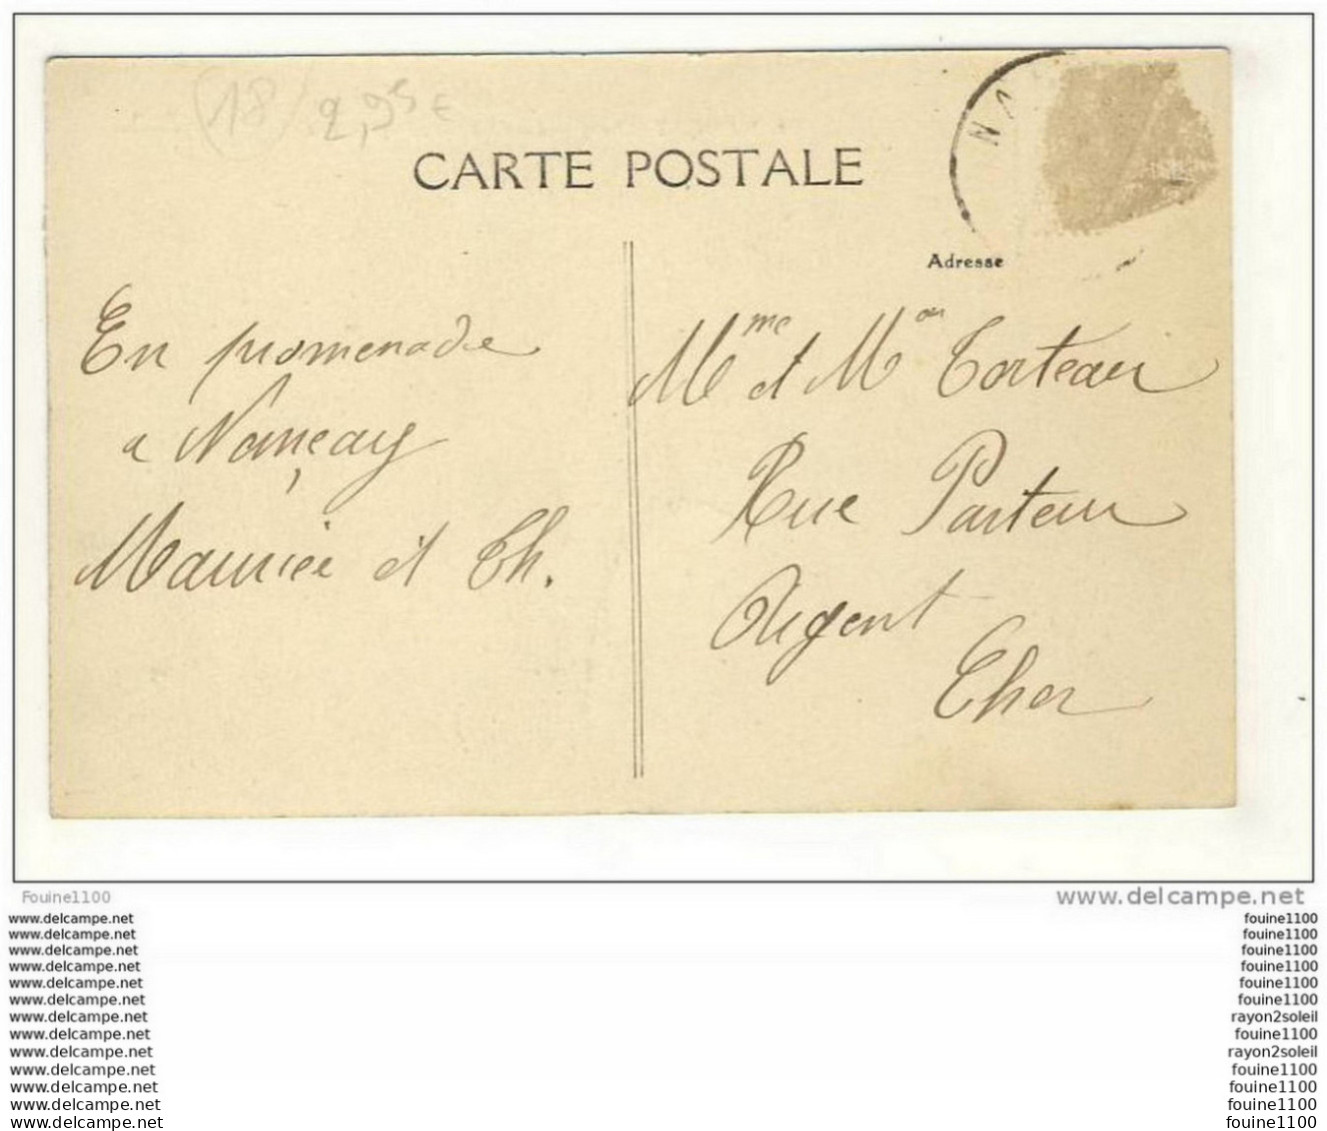 (18) 2,95€
CARTE POSTALE
NA
Adresse
En promenade
a Nançay
Maurice et Th.
Mme et Mon Torteau
Rue Pasteur
Argent
Cher
Fouine1100
www.delcampe.net
www.delcampe.net fouine1100
www.delcampe.net fouine1100
www.delcampe.net fouine1100
www.delcampe.net fouine1100
www.delcampe.net fouine1100
www.delcampe.net fouine1100
www.delcampe.net rayon2soleil
www.delcampe.net fouine1100
www.delcampe.net rayon2soleil
www.delcampe.net fouine1100
www.delcampe.net fouine1100
www.delcampe.net fouine1100
www.delcampe.net fouine1100